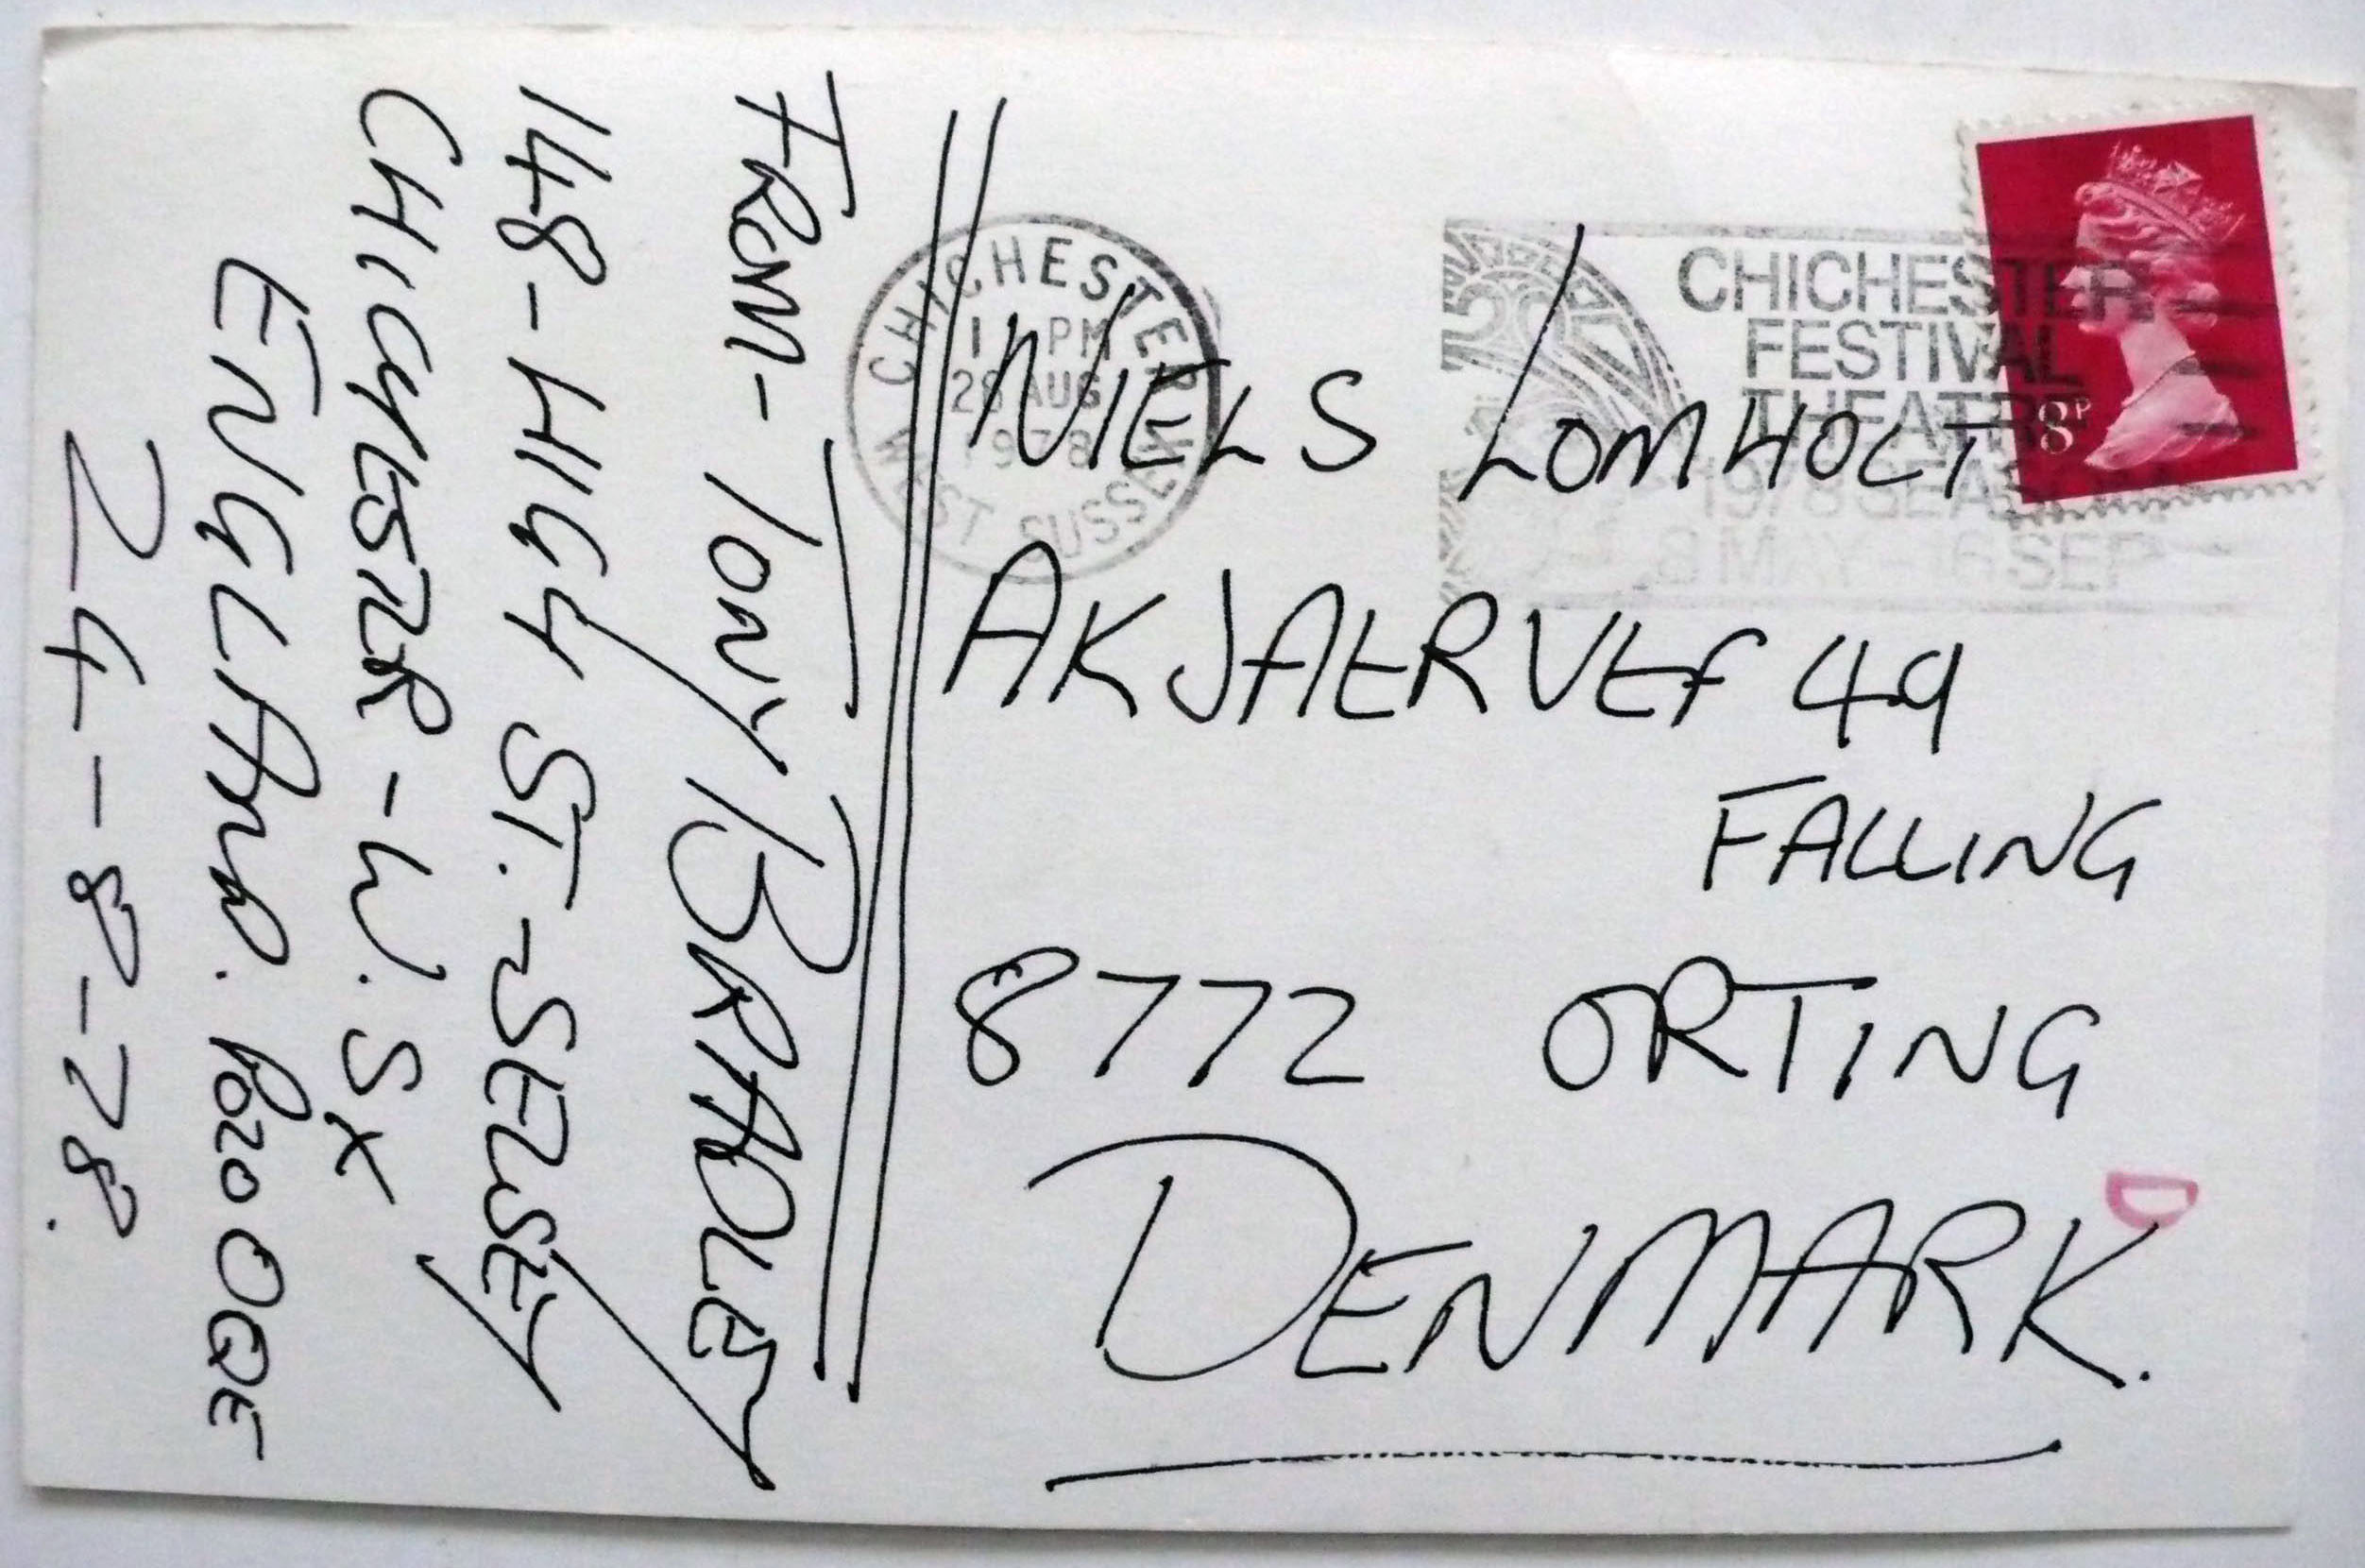 FROM - TONY BRADLEY
148 - HIGH ST. - SELSEY
CHICHESTER - W. SX
ENGLAND. PO20 0QE
24-8-78.
CHICHESTER
PM
AUG
1978
WEST SUSSEX
CHICHESTER
FESTIVAL
THEATRE
1978 SEASON
8 MAY - 16 SEP
8P
NIELS LOMHOLT
AKJAERVEF 49
FALLING
8772 ORTING
DENMARK.
D